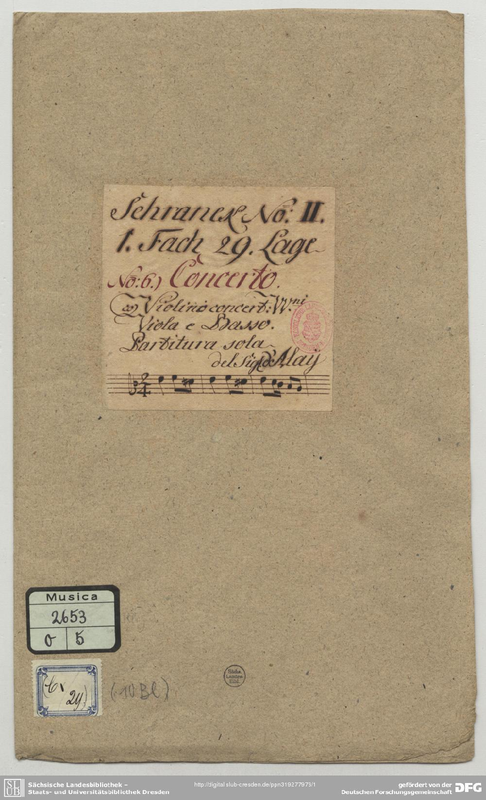 Schranck No: II.
1. Fach 29. Lage
No: 6.) Concerto.
Violino concert: VV.ni
Viola e Basso.
Partitura sola
del Sigr. Alaij
2/4
Musica
2653
O 5
29)
(10 Bl)
Sächs.
Landes
Bibl.
SLUB
Sächsische Landesbibliothek -
Staats- und Universitätsbibliothek Dresden
http://digital.slub-dresden.de/ppn319277979/1
gefördert von der
Deutschen Forschungsgemeinschaft
DFG